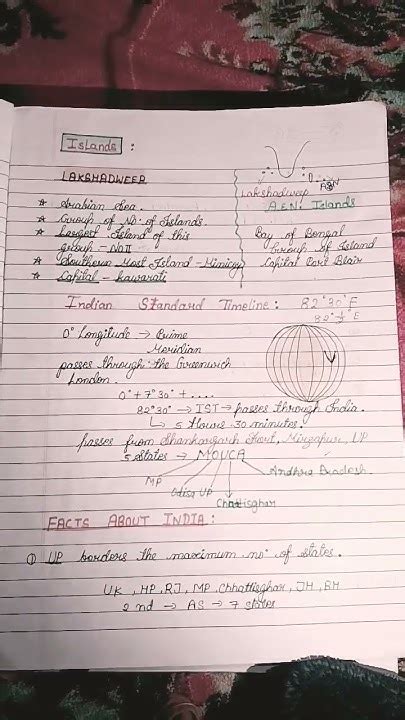 Islands :
LAKSHADWEEP
Lakshadweep A&N
A&N: Islands
* Arabian Sea.
* Group of No: of Islands.
* Largest Island of this
group -
* Southern Most Island - Minicoy
* Capital - Kawarati
Bay of Bengal
Group of Island
Capital Port Blair
Indian Standard Timeline : 82°30'E
82°½°E
0° Longitude → Prime
Meridian
passes through the Greenwich
London.
0° + 7°30' + ....
82°30' → IST → passes through India.
↳ 5 Hours 30 minutes.
passes from Shankargarh Fort, Mirzapur, UP
5 States → MOUCA
MP
Odisa UP
Chhattisghar
Andhra Pradesh.
FACTS ABOUT INDIA :
① UP borders the maximum no: of states.
UK, HP, RJ, MP, Chhattisghar, JH, BH
2nd → AS → 7 states